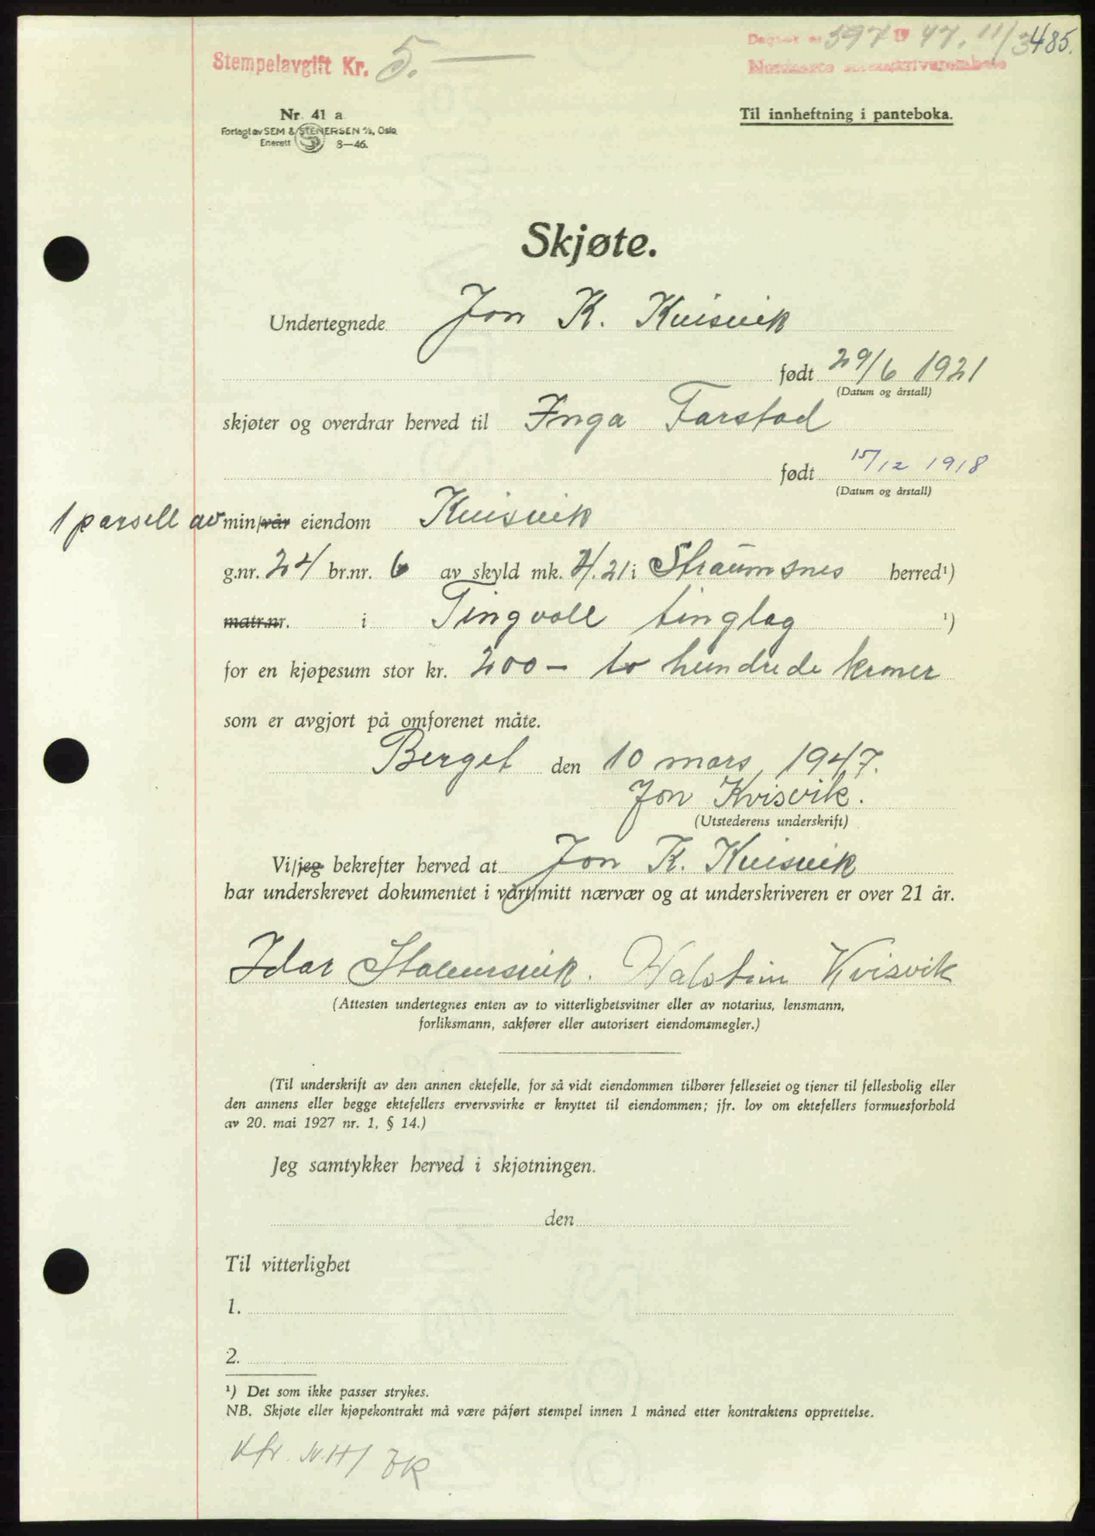 Stempelavgift Kr. 5.—
Dagbok nr 597 19 47. 11/3 485.
Nordmøre sorenskriverembete
Nr. 41 a
Forlagt av SEM & STENERSEN A/S, Oslo
Enerett 8—46.
Til innheftning i panteboka.
Skjøte.
Undertegnede Jon K. Kvisvik
født 29/6 1921
(Datum og årstall)
skjøter og overdrar herved til Inga Farstad
født 15/12 1918
(Datum og årstall)
1 parsell av min/vår eiendom Kvisvik
g.nr. 24 br.nr. 6 av skyld mk. 2.21 i Straumsnes herred¹)
matr.nr. i Tingvoll tinglag ¹)
for en kjøpesum stor kr. 200 — to hundrede kroner
som er avgjort på omforenet måte.
Berget den 10 mars 1947.
Jon Kvisvik.
(Utstederens underskrift)
Vi/jeg bekrefter herved at Jon K. Kvisvik
har underskrevet dokumentet i vårt/mitt nærvær og at underskriveren er over 21 år.
Idar Kvisvik
(Attesten undertegnes enten av to vitterlighetsvitner eller av notarius, lensmann,
forliksmann, sakfører eller autorisert eiendomsmegler.)
(Til underskrift av den annen ektefelle, for så vidt eiendommen tilhører felleseiet og tjener til fellesbolig eller
den annens eller begge ektefellers ervervsvirke er knyttet til eiendommen; jfr. lov om ektefellers formuesforhold
av 20. mai 1927 nr. 1, § 14.)
Jeg samtykker herved i skjøtningen.
den
Til vitterlighet
1.
2.
¹) Det som ikke passer strykes.
NB. Skjøte eller kjøpekontrakt må være påført stempel innen 1 måned etter kontraktens opprettelse.